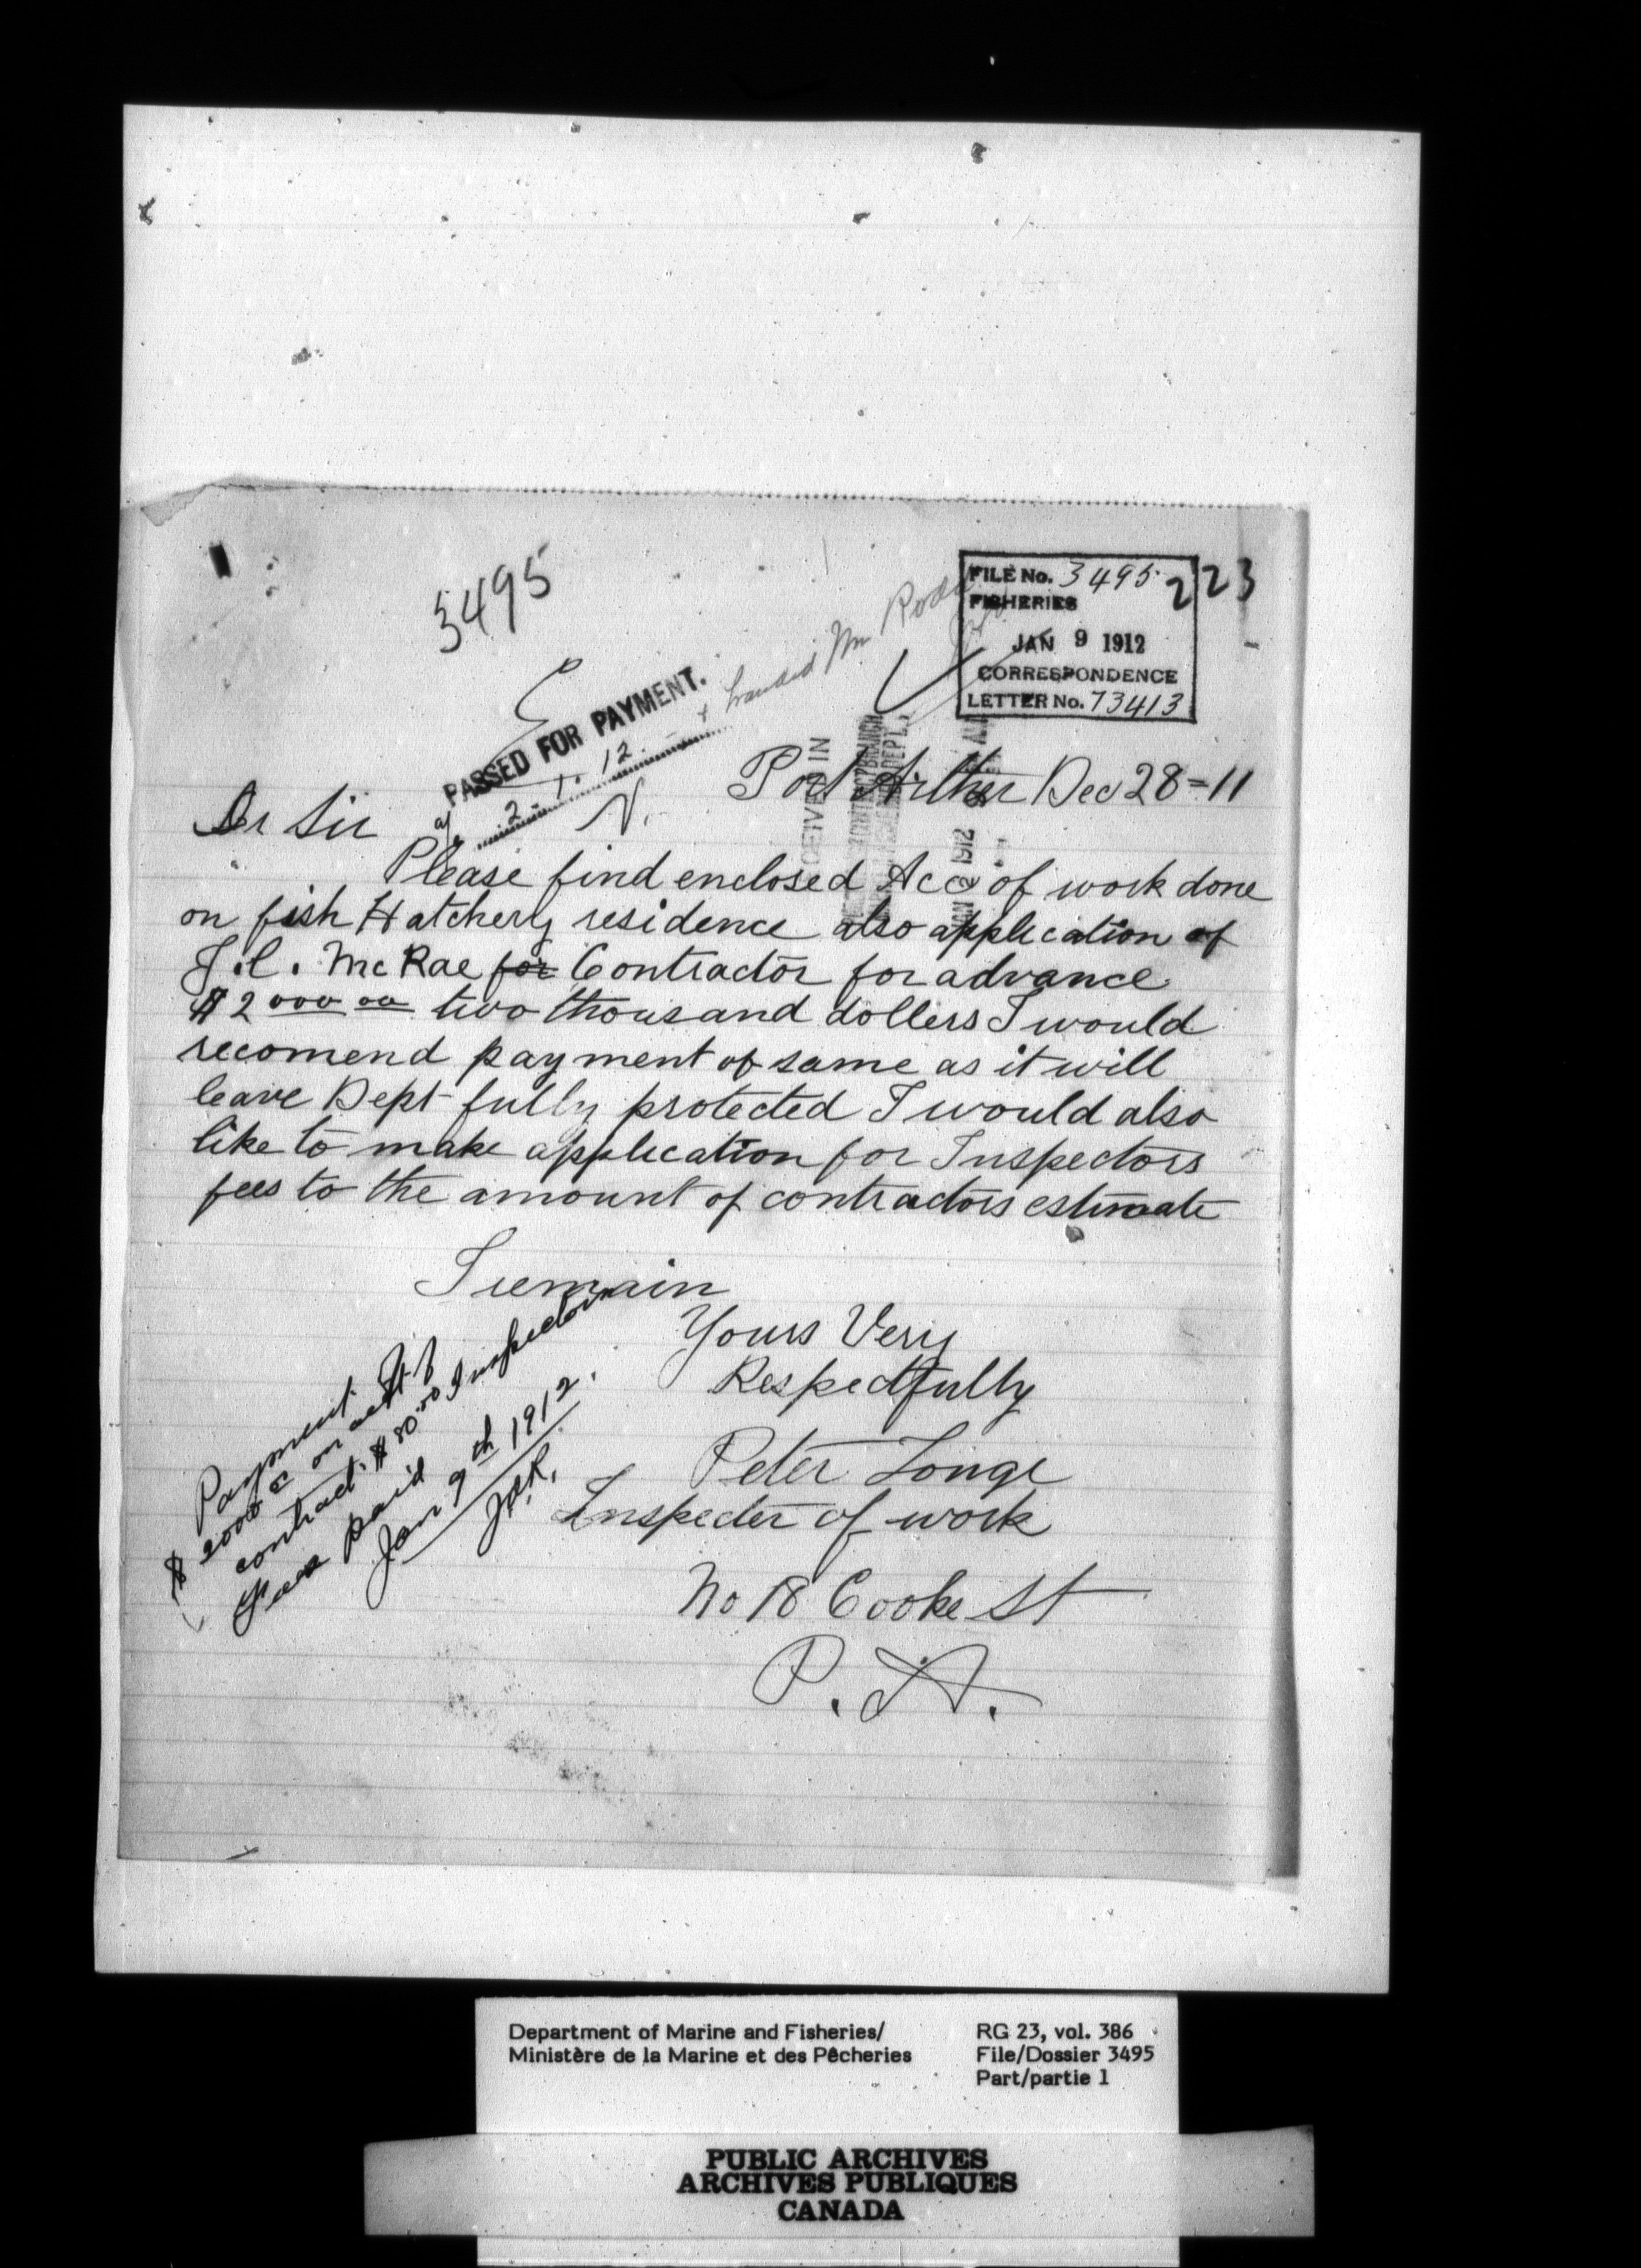 3495
FILE No. 3495
223
FISHERIES
JAN 9 1912
CORRESPONDENCE
LETTER No. 73413
PASSED FOR PAYMENT.
2-1.12
Port Arthur Dec 28=11
Dr Sir
Please find enclosed Acc of work done
on fish Hatchery residence also application of
J.C. McRae for Contractor for advance
$2000 00 two thousand dollers I would
recomend payment of same as it will
leave Dept fully protected I would also
like to make application for Inspectors
fees to the amount of contractors estimate
I remain
Yours Very
Respectfully
Peter Longe
Inspecter of work
No 18 Cooke St
P. A.
Payment of
$2000 on acct of
contract. $80.00 Inspection
Fees Paid
Jan 9th 1912.
Department of Marine and Fisheries/
Ministère de la Marine et des Pêcheries
RG 23, vol. 386
File/Dossier 3495
Part/partie 1
PUBLIC ARCHIVES
ARCHIVES PUBLIQUES
CANADA